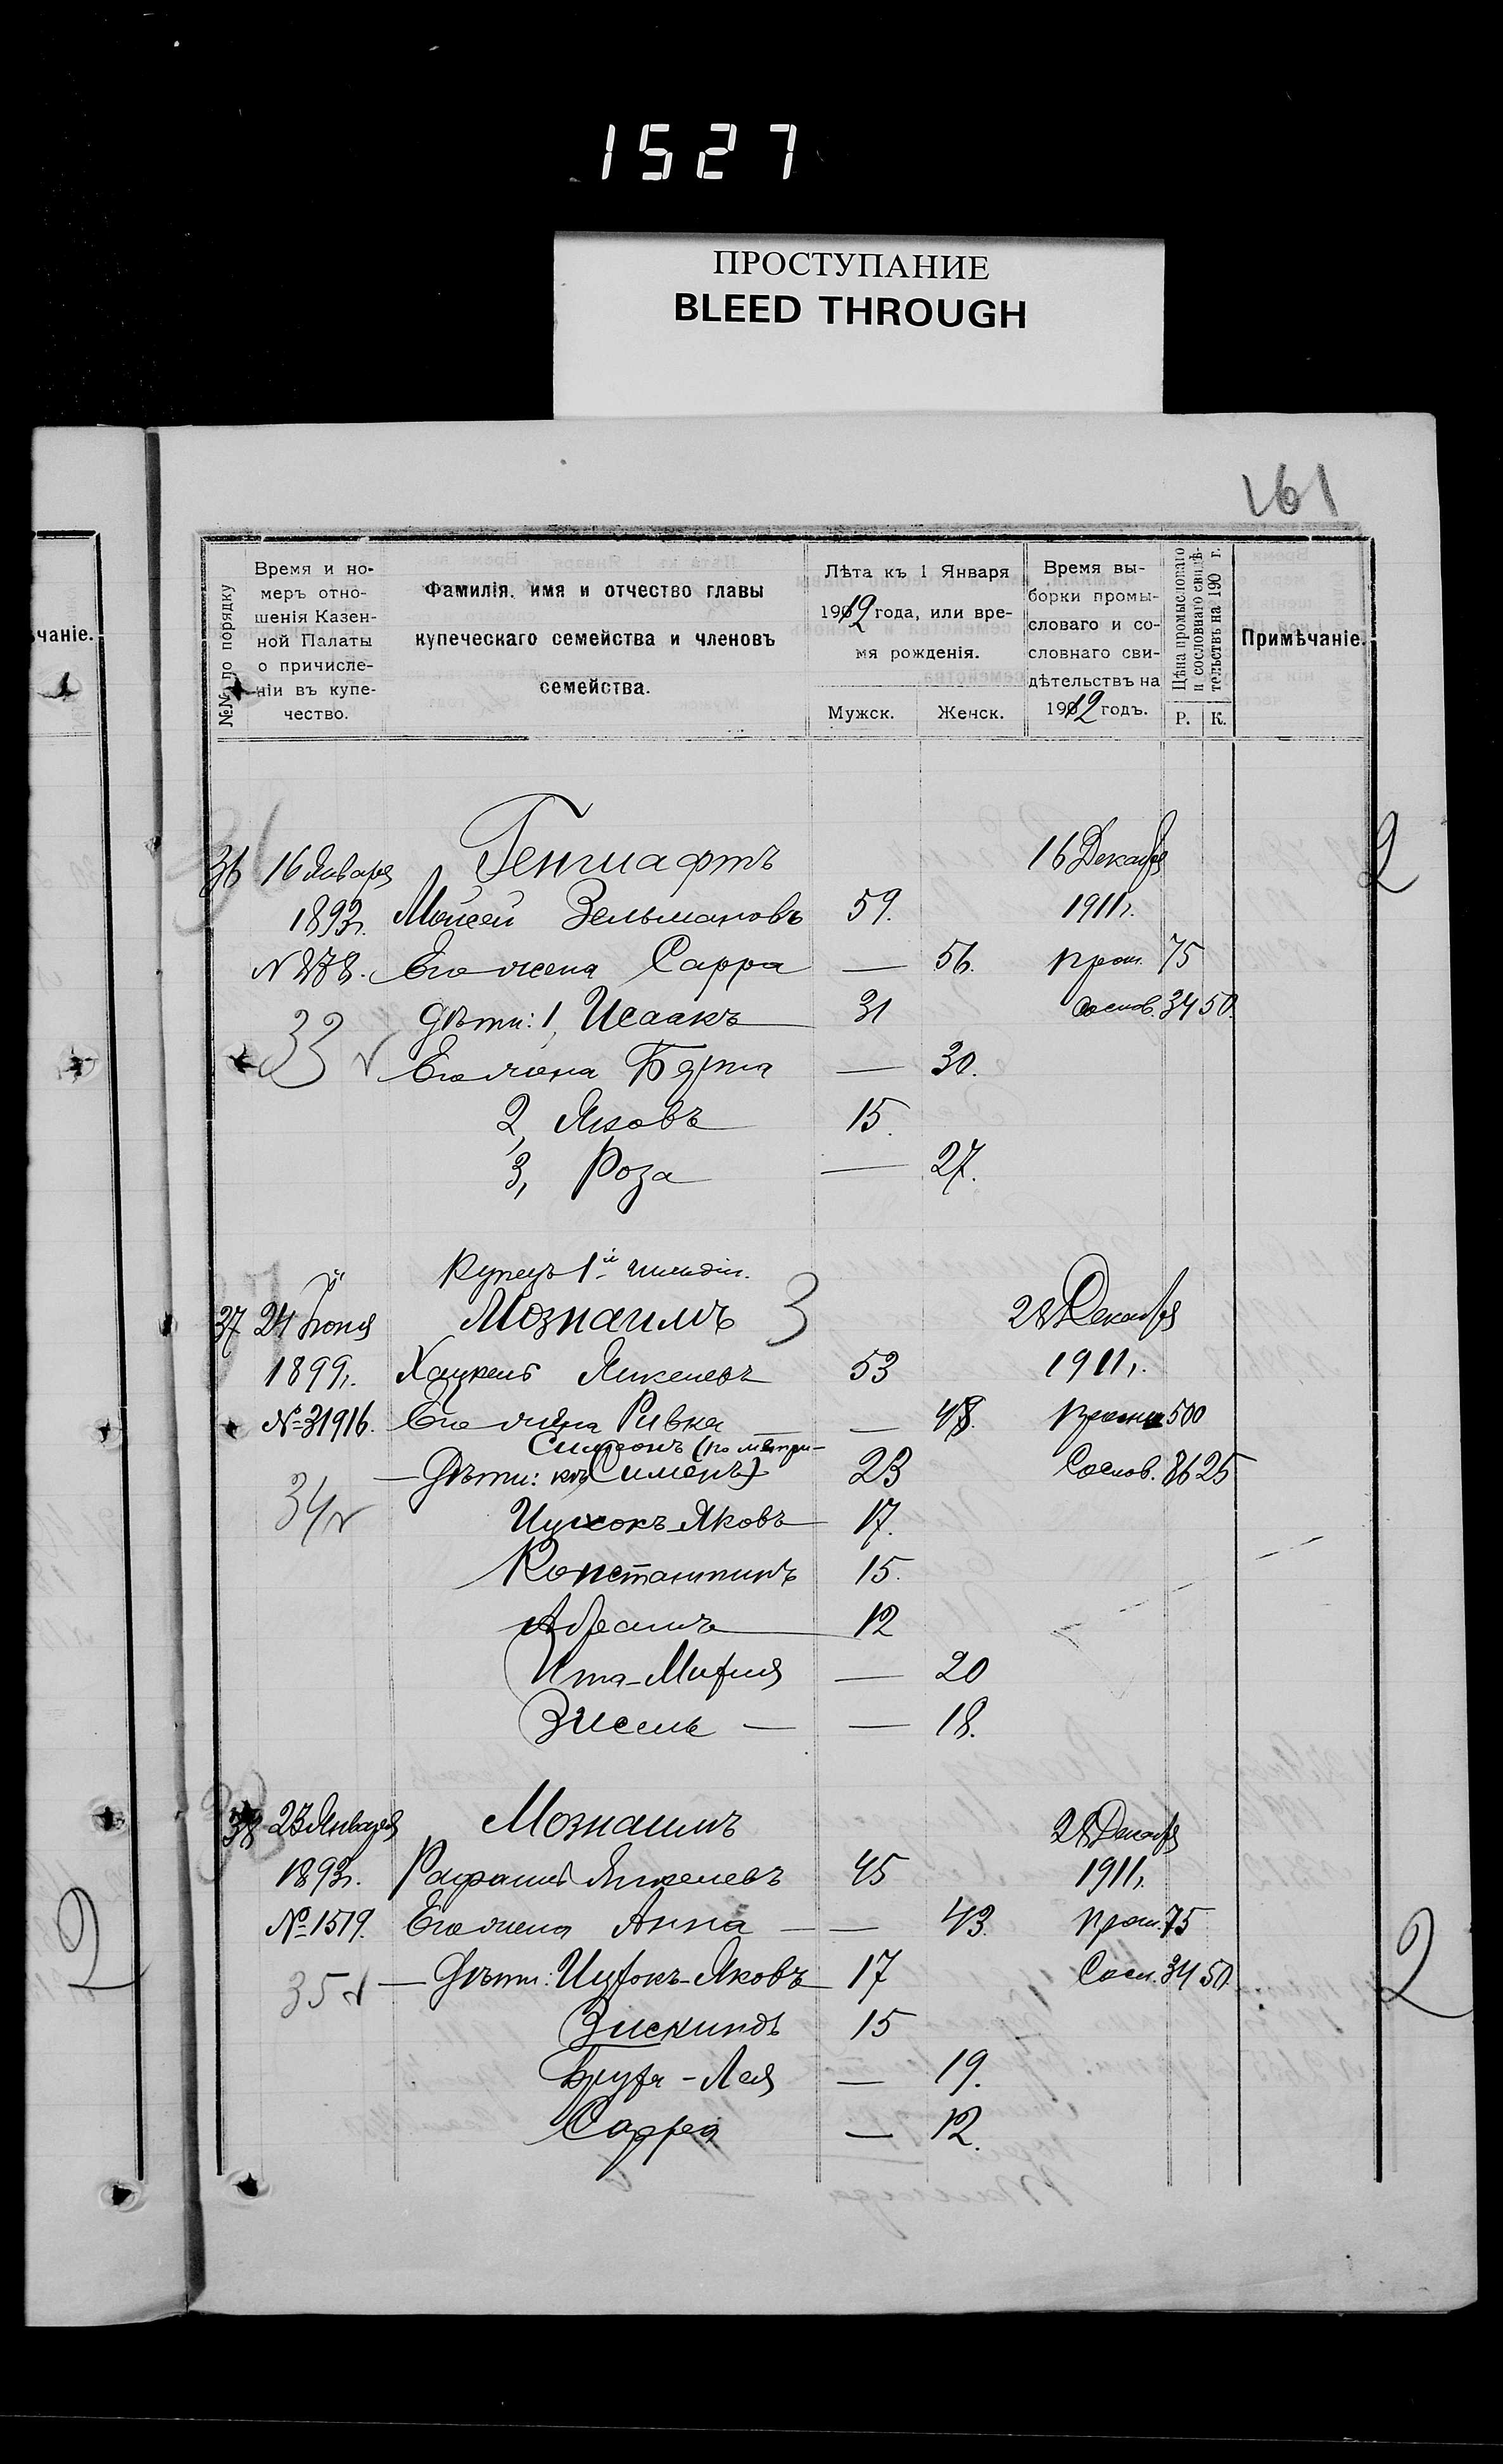 1527
ПРОСТУПАНИЕ
BLEED THROUGH
161
чаніе.
№№ по порядку
Время и но-
меръ отно-
шенія Казен-
ной Палаты
о причисле-
ніи въ купе-
чество.
Фамилія, имя и отчество главы
купеческаго семейства и членовъ
семейства.
Лѣта къ 1 Января
1912 года, или вре-
мя рожденія.
Мужск. Женск.
Время вы-
борки промы-
словаго и со-
словнаго сви-
дѣтельствъ на
1912 годъ.
Цѣна промысловаго
и сословнаго свидѣ-
тельствъ на 190 г.
Р. К.
Примѣчаніе.
36 16 Января 16 Декабря 2
1893г. Мойсей Зельмановъ 59. 1911г.
Его жена Сарра — 56. пром. 75
Дѣти: 1, Исаакъ 31 сослов. 34 50.
33 Его жена Берта — 30.
2, Яковъ 15.
3, Роза — 27.
Купецъ 1й гильдіи.
37 24 Іюня Мознаимъ 3 28 Декабря
1899г. Хацкель Янкелевъ 53 1911г.
№ 31916. Его жена Ривка — 48. 500
Симеонъ (по метри-
— Дѣти: кѣ Сименъ) 23 Сослов. 86 25
34 Ицхокъ-Яковъ 17.
Константинъ 15.
Абрамъ 12
Ита-Мирия — 20
Зисель — — 18.
38 23 Января Мознаимъ 28 Декабря
1893г. Рафаилъ Янкелевъ 45 1911г.
№ 1519. Его жена Анна — — 43. пром. 75
35 — Дѣти: Ицхокъ-Яковъ 17 Сосл. 34 50.
Зискиндъ 15
Бруха-Лея — 19.
Сарра — 12.
2 2